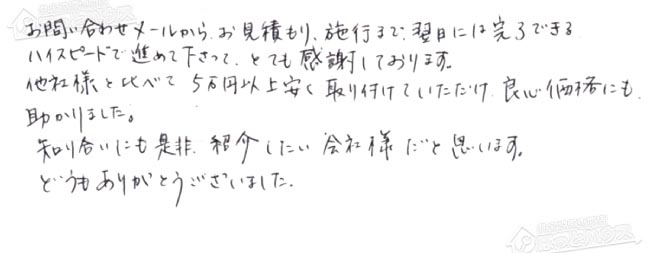 お問い合わせメールから、お見積もり、施行まで、翌日には完了できる
ハイスピードで進めて下さって、とても感謝しております。
他社様と比べて5万円以上安く取り付けていただけ、良心価格にも、
助かりました。
知り合いにも是非、紹介したい会社様だと思います。
どうもありがとうございました。